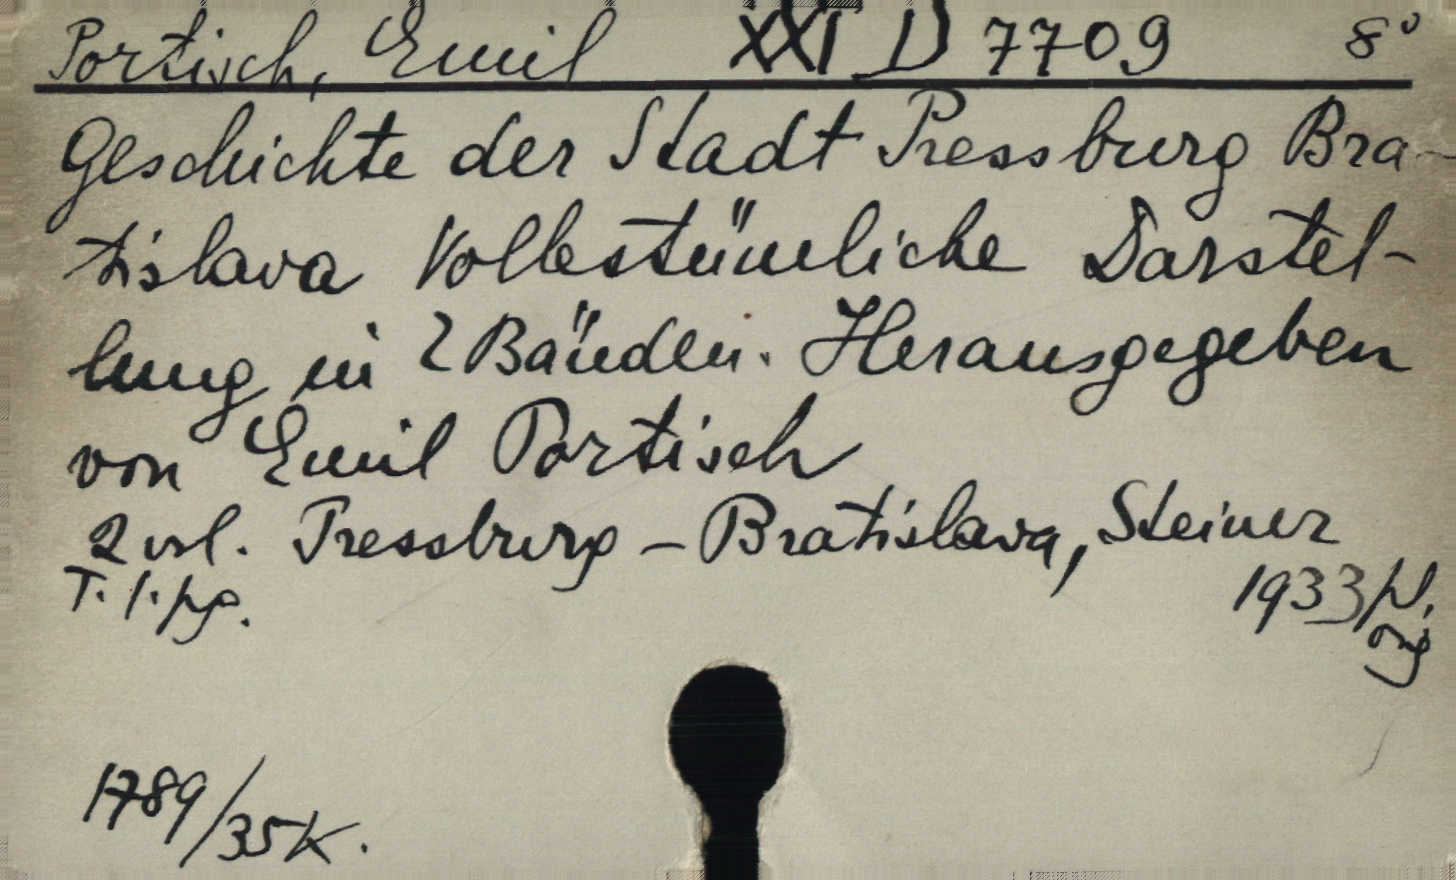 Portisch, Emil XXI D 7709 8°
Geschichte der Stadt Pressburg Bra-
tislava Volkestümliche Darstel-
lung in 2 Bänden. Herausgegeben
von Emil Portisch
2 vol. Pressburg - Bratislava, Steiner
T. 1. pg. 1933 pl.
1789/35K.